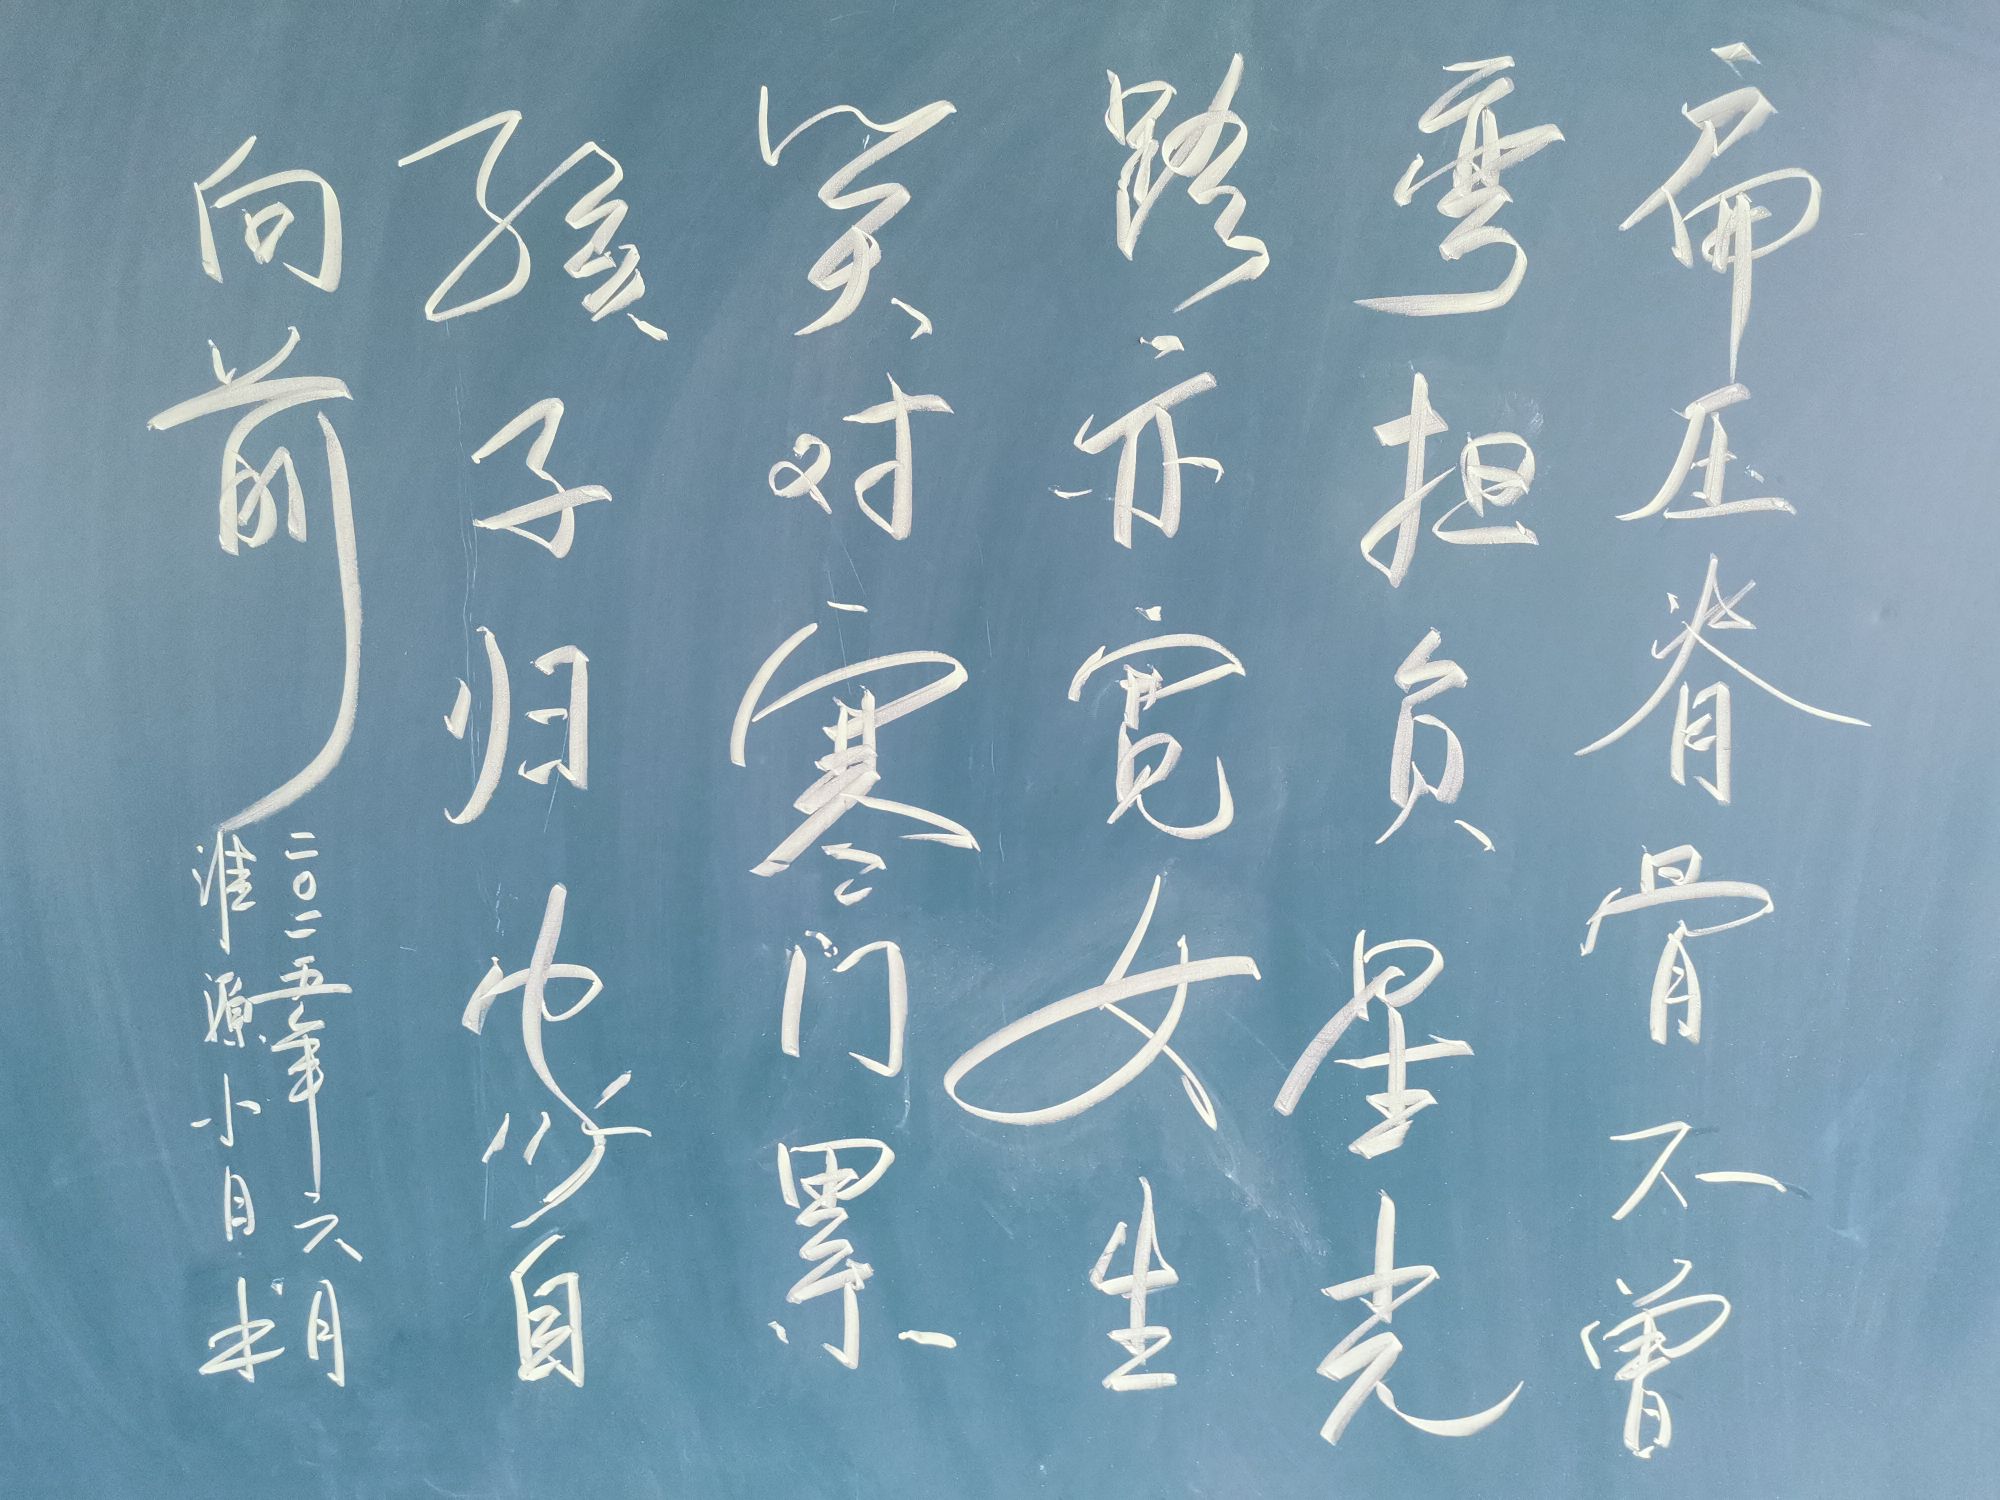 扁压脊骨不曾
弯担负星光
路亦宽女生
笑对寒门累
孩子归自
向前
二〇二五年六月
淮源小目书